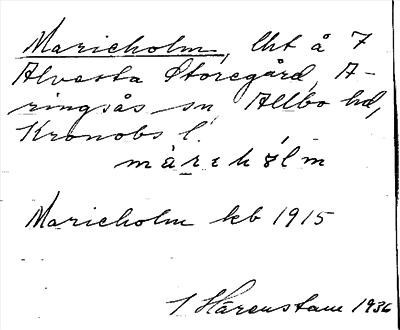 Marieholm, lht å 7
Alvesta Storegård, A-
ringsås sn, Allbo hd,
Kronobs l.
Marieholm kb 1915
Härenstam 1936